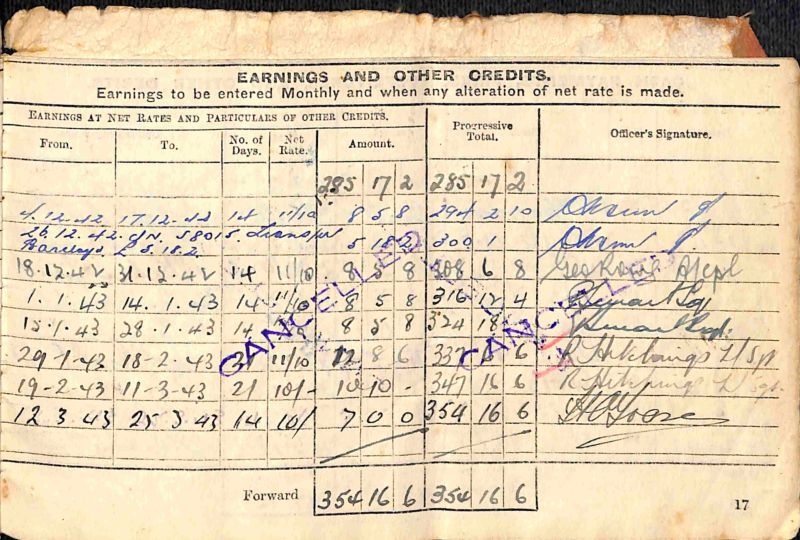 EARNINGS AND OTHER CREDITS.
Earnings to be entered Monthly and when any alteration of net rate is made.
EARNINGS AT NET RATES AND PARTICULARS OF OTHER CREDITS.
Progressive Total.
Officer's Signature.
From. To. No. of Days. Net Rate. Amount.
285 17 2 285 17 2
4.12.42 17.12.42 14 11/10 8 5 8 294 2 10
26.12.42 58015 Transfer
Barclays £5.18.2 5 18 2 300 1
18.12.42 31.12.42 14 11/10 8 5 8 308 6 8
1.1.43 14.1.43 14 11/10 8 5 8 316 12 4
15.1.43 28.1.43 14 8 5 8 324 18
29.1.43 18.2.43 21 11/10 12 8 6 337 6 6 R Hitchings L/Sgt
19-2-43 11-3-43 21 10/- 10 10 - 347 16 6 R Hitchings L/Sgt
12.3.43 25.3.43 14 10/ 7 0 0 354 16 6
CANCELLED
CANCELLED
Forward 354 16 6 354 16 6
17